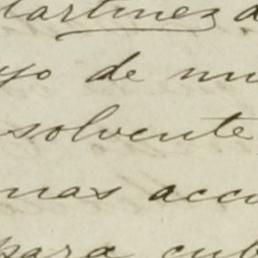 Martinez d
yo de mu
solvente
nas accu
para cub